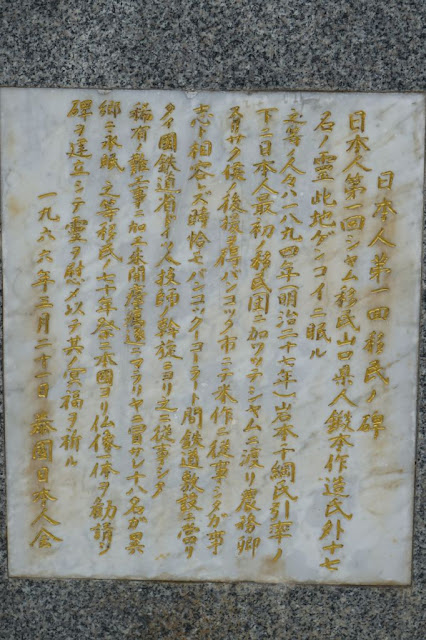 日本人第一回移民ノ碑
日本人第一回シャム移民山口県人鍛本作造氏外十七
名ノ霊此地ゲンコイニ眠ル
之等ノ人々ハ一八九四年(明治二十七年)岩本千綱氏引率ノ
下ニ日本人最初ノ移民団ニ加ワッテシャムニ渡リ農務卿
スリサク侯ノ後援ヲ得バンコック市ニテ米作ニ従事シタガ事
志ト相容レズ時恰モバンコック-コーラート間鉄道敷設ニ當リ
タイ國鉄道省ドイツ人技師ノ斡旋ニヨリ之ニ従事シタ
稀有ノ難工事ニ加エ未開ニマラリヤニ冒サレ十八名ガ異
郷ニ永眠 之等移民ノ七十年祭ニ本國ヨリ仏像一体ヲ勧請シ
碑ヲ建立シテ霊ヲ慰メ以テ其ノ冥福ヲ祈ル
一九六六年三月二十一日 泰國日本人会